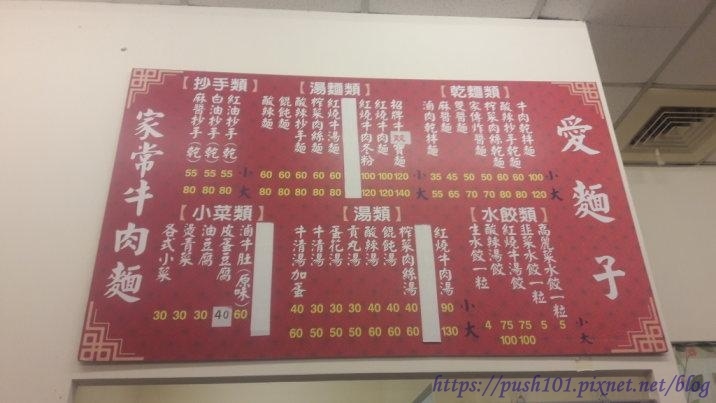 愛麵子
【乾麵類】
小 大
牛肉乾拌麵 100 120
酸辣抄手乾麵 60 80
榨菜肉絲乾麵 60 80
家傳炸醬麵 50 70
雙醬麵 50 70
麻醬麵 45 65
滷肉乾拌麵 35 55
【湯麵類】
小 大
招牌牛雙寶麵 120 140
紅燒牛肉麵 100 120
紅燒牛肉冬粉 100 120
紅燒牛湯麵 60 80
榨菜肉絲麵 60 80
酸辣抄手麵 60 80
餛飩麵 60 80
酸辣麵 60 80
【抄手類】
小 大
紅油抄手(乾) 55 80
白油抄手(乾) 55 80
麻醬抄手(乾) 55 80
【水餃類】
小 大
高麗菜水餃一粒 5
韭菜水餃一粒 5
紅燒牛湯餃 75 100
酸辣湯餃 75 100
生水餃一粒 4
【湯類】
小 大
紅燒牛肉湯 90 130
榨菜肉絲湯 40 60
酸辣湯 40 60
餛飩湯 40 60
貢丸湯 30 50
蛋花湯 30 50
牛清湯 30 50
牛清湯加蛋 40 60
【小菜類】
滷牛肚(原味) 60
皮蛋豆腐 40
油豆腐 30
燙青菜 30
各式小菜 30
家常牛肉麵
https://push101.pixnet.net/blog